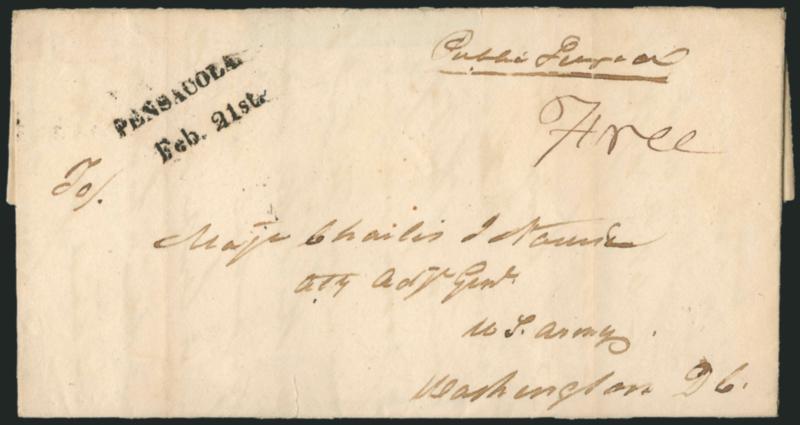 PENSACOLA
Feb. 21st.
Public Service
Free
To/.
Majr Charles J Nourse
Adjt Genl
U S. Army.
Washington D C.